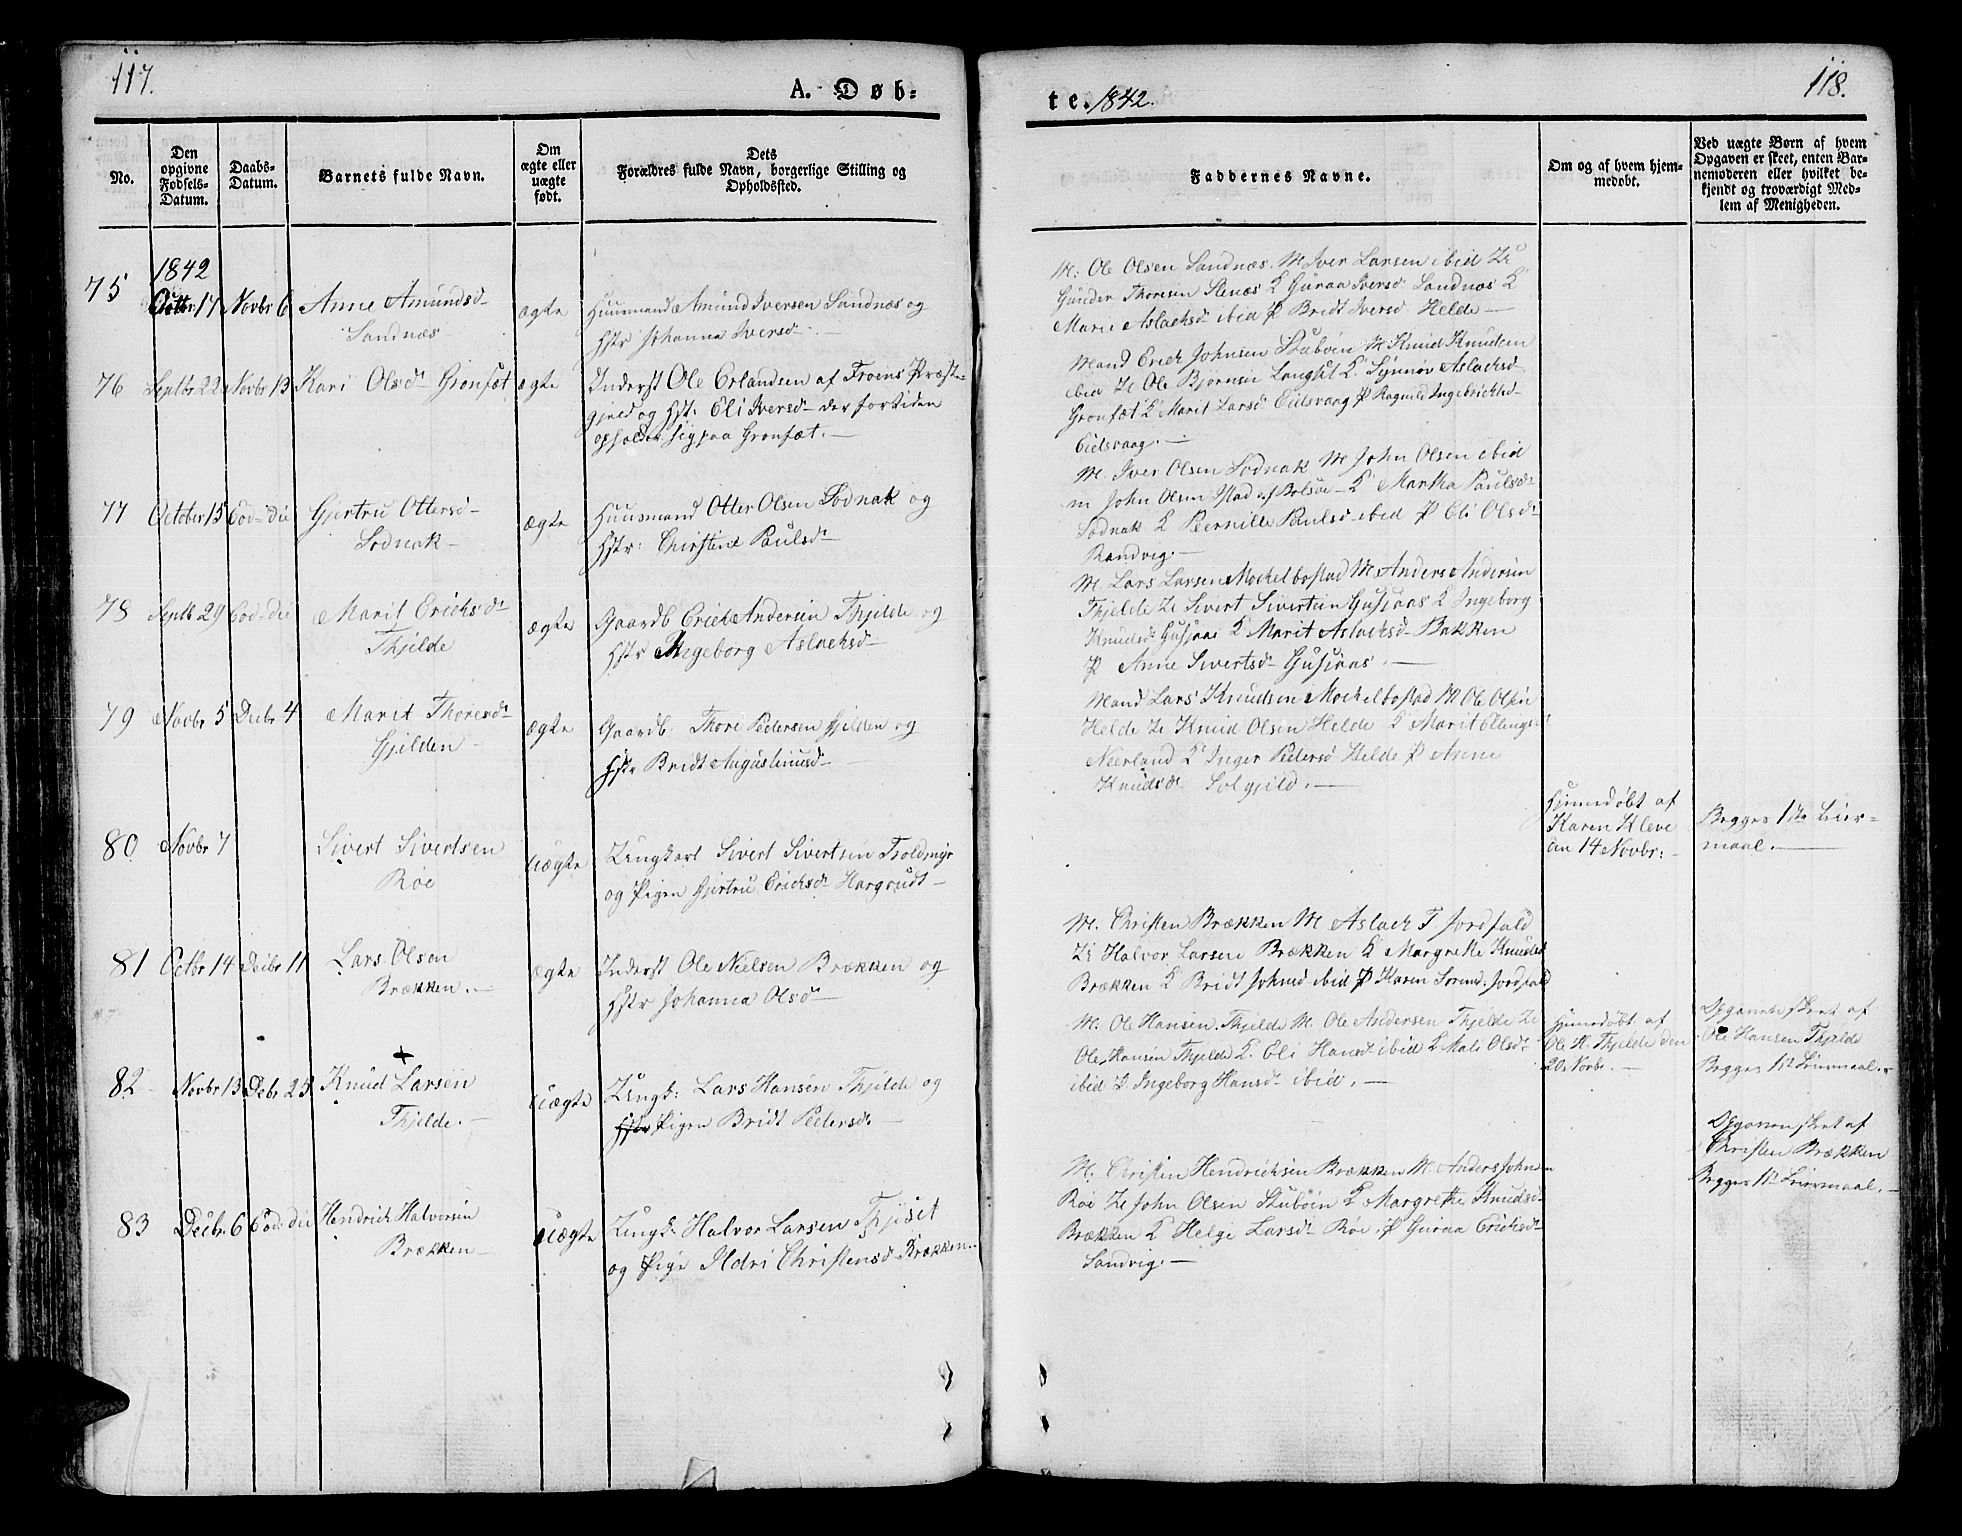 117.
A. Døb=
te. 1842.
118.
No.
Den opgivne Fødsels-Datum.
Daabs-Datum.
Barnets fulde Navn.
Om ægte eller uægte født.
Dets Forældres fulde Navn, borgerlige Stilling og Opholdssted.
Faddernes Navne.
Om og af hvem hjemmedøbt.
Ved uægte Børn af hvem Opgaven er skeet, enten Barnemoderen eller hvilket bekjendt og troværdigt Medlem af Menigheden.
1842
75 Octbr 17 Novbr 6 Anne Amundsd-
Sandnæs
ægte
Huusmand Amund Iversen Sandnæs og
Hstr Johanna Iversd-
M: Ole Olsen Sandnæs. M Iver Larsen ibid
Gunder Thoresen Stenæs K Guraa Iversd Sandnæs K
Marie Aslachsd ibid P Bridt Iversd Helde —
76 Septbr 22 Novbr 13 Kari Olsd- Gronfæt
ægte
Inderst Ole Erlandsen af Troens Præste-
gjeld og Hst: Eli Iversd- der for tiden
opholder sig paa Gronfæt. —
Mand Erick Johnsen Stuboin M Knud Knudsen
ibid Ole Bjørnsen Langset K. Synnøv Aslachsd
Gronfæt K Marit Larsd- Eidsvaag P Ragnild Ingebrichtsd-
Eidsvaag. —
77 October 15 Eod-die Gjertru Ottersd-
Sodnak-
ægte
Huusmand Otter Olsen Sodnak og
Hstr: Chirstena Paulsd-
M. Iver Olsen Sodnak M John Olsen ibid
m John Olsen Istad af Bolsøe- K Martha Paulsd-
Sodnak K Pernille Paulsd- ibid P Eli Olsd-
Randvig. —
78 Septb 29 Eod-die Marit Erichsd-
Thjelde
ægte
Gaardb Erick Andersen Thjelde og
Hstr Ingeborg Aslachsd-
M. Lars Larsen Mochelbostad M Anders Andersen
Thjelde Sivert Sivertsen Gusjaas K Ingeborg
Knudsd- Gusjaas K Marit Aslachsd- Bakken
P Anne Sivertsd- Gusjaas. —
79 Novbr 5 Decbr 4 Marit Thoresd-
Gjelden-
ægte
Gaardb- Thore Pedersen Gjelden og
Hstr Bridt Augustinusd-
Mand Lars Knudsen Mochelbostad M Ole Olsen
Helde Knud Olsen Helde K Marit Ellingsd
Neerland K Inger Pedersd- Helde P Anne
Knudsd- Solgjeld. —
80 Novbr 7 Sivert Sivertsen
Røe
uægte
Ungkarl Sivert Sivertsen Troldmyr
og Pigen Gjertru Erichsd- Hargrudt-
Hjemedøbt af
Karen Kleve
den 14 Novbr: -
Begges 1ste Leier-
maal. —
81 Octbr 14 Decbr 11 Lars Olsen
Brækken. -
ægte
Inderst Ole Nielsen Brækken og
Hstr Johanna Olsd-
M. Christen Brækken M Aslach T Jordfald
Halvor Larsen Brækken K Margrethe Knudsd
Brækken K Bridt Johnsd ibid P Karen Jordfald
82 Novbr 13 Debr 25 Knud Larsen
Thjelde. -
uægte
Ungk: Lars Hansen Thjelde og
Hstr Pigen Bridt Pedersd. -
M. Ole Hansen Thjelde M. Ole Andersen Thjelde
Ole Hansen Thjelde K. Eli Hansd- ibid K Mali Olsd-
ibid Ingeborg Hansd- ibid. —
Hjemedøbt af
Ole H. Thjelde den
20 Novbr. -
Opgaven skeet af
Ole Hansen Thjelde
Begges 1ste Leiermaal. -
83 Decbr. 6 Eod. die Hendrich Halvorsen
Brækken-
uægte
Ungk: Halvor Larsen Thjøset
og Pige Ildri Christensd- Brækken-
M. Christen Hendrichsen Brækken M. Anders Johnsen
Røe John Olsen Stuboin K Margrethe Knudsd-
Brækken K Helge Larsd- Røe P Guraa Erichsd-
Sandvig. —
Opgaven skeet af
Christen Brækken
Begges 1ste Leiermaal. -